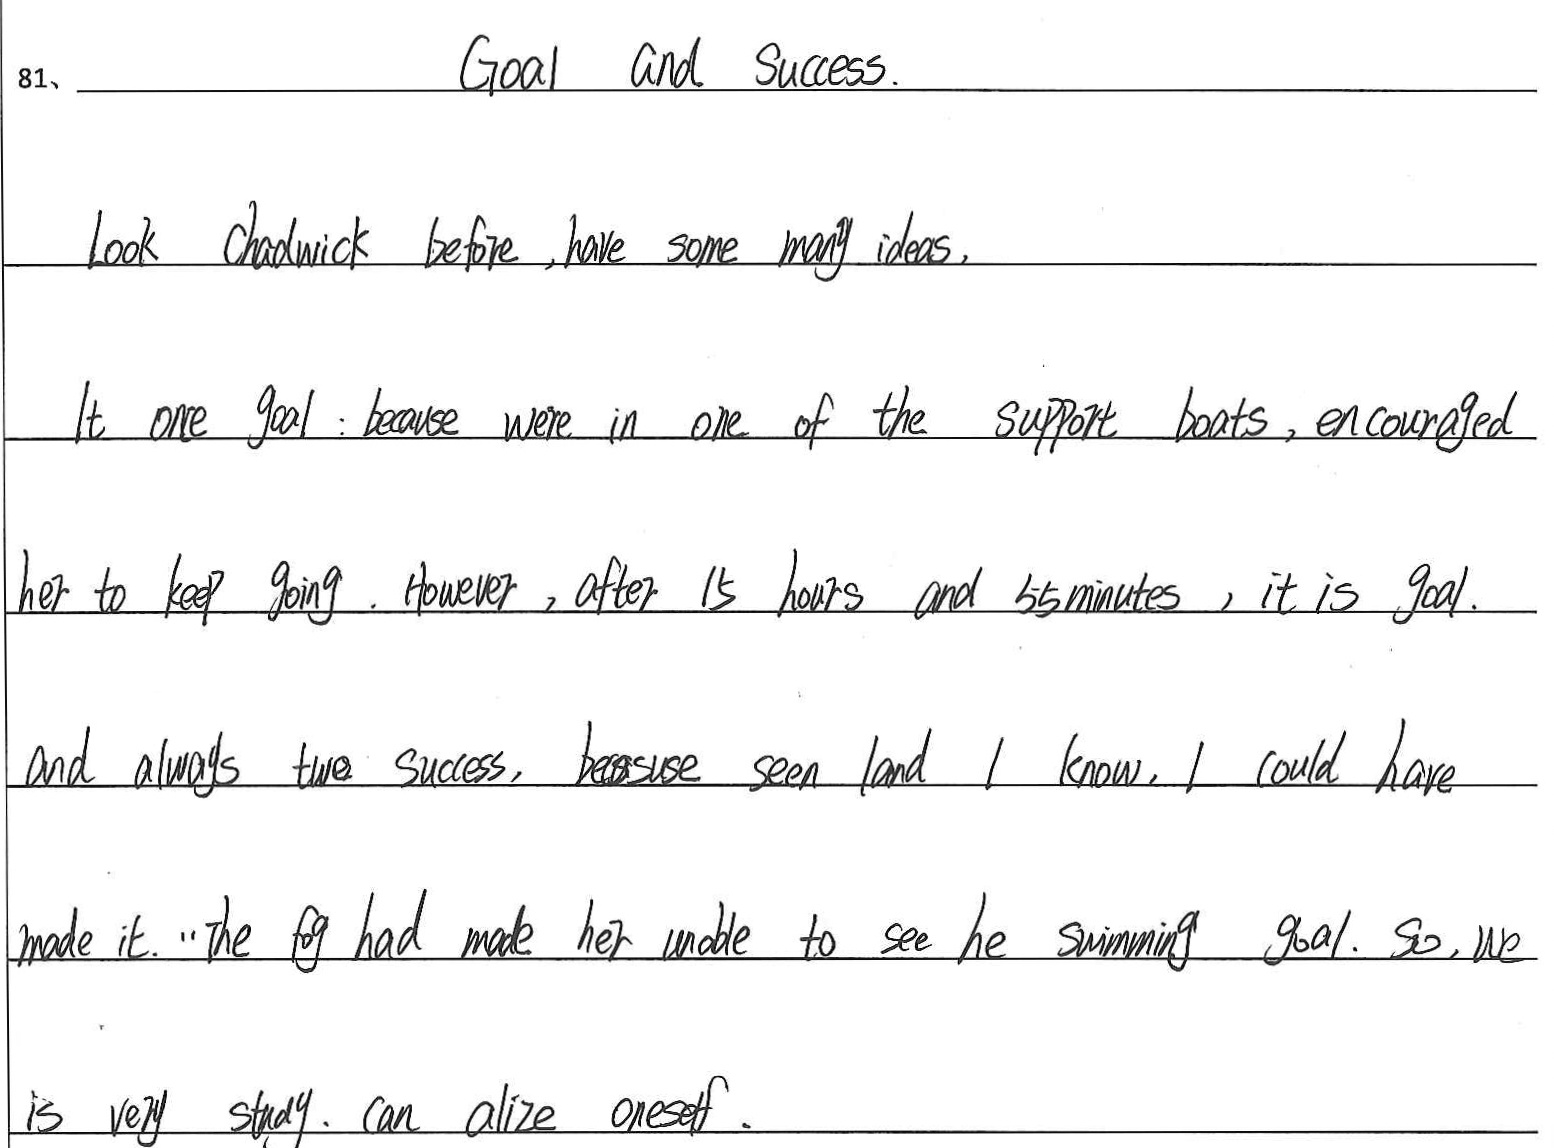 81、 Goal and Success.
Look Chadwick before, have some many ideas.
It one goal: because were in one of the support boats, encouraged
her to keep going. However, after 15 hours and 55 minutes, it is goal.
and always two success, because seen land I know. I could have
made it. "The fog had made her unable to see he swimming goal. So, we
is very study. Can alize oneself.